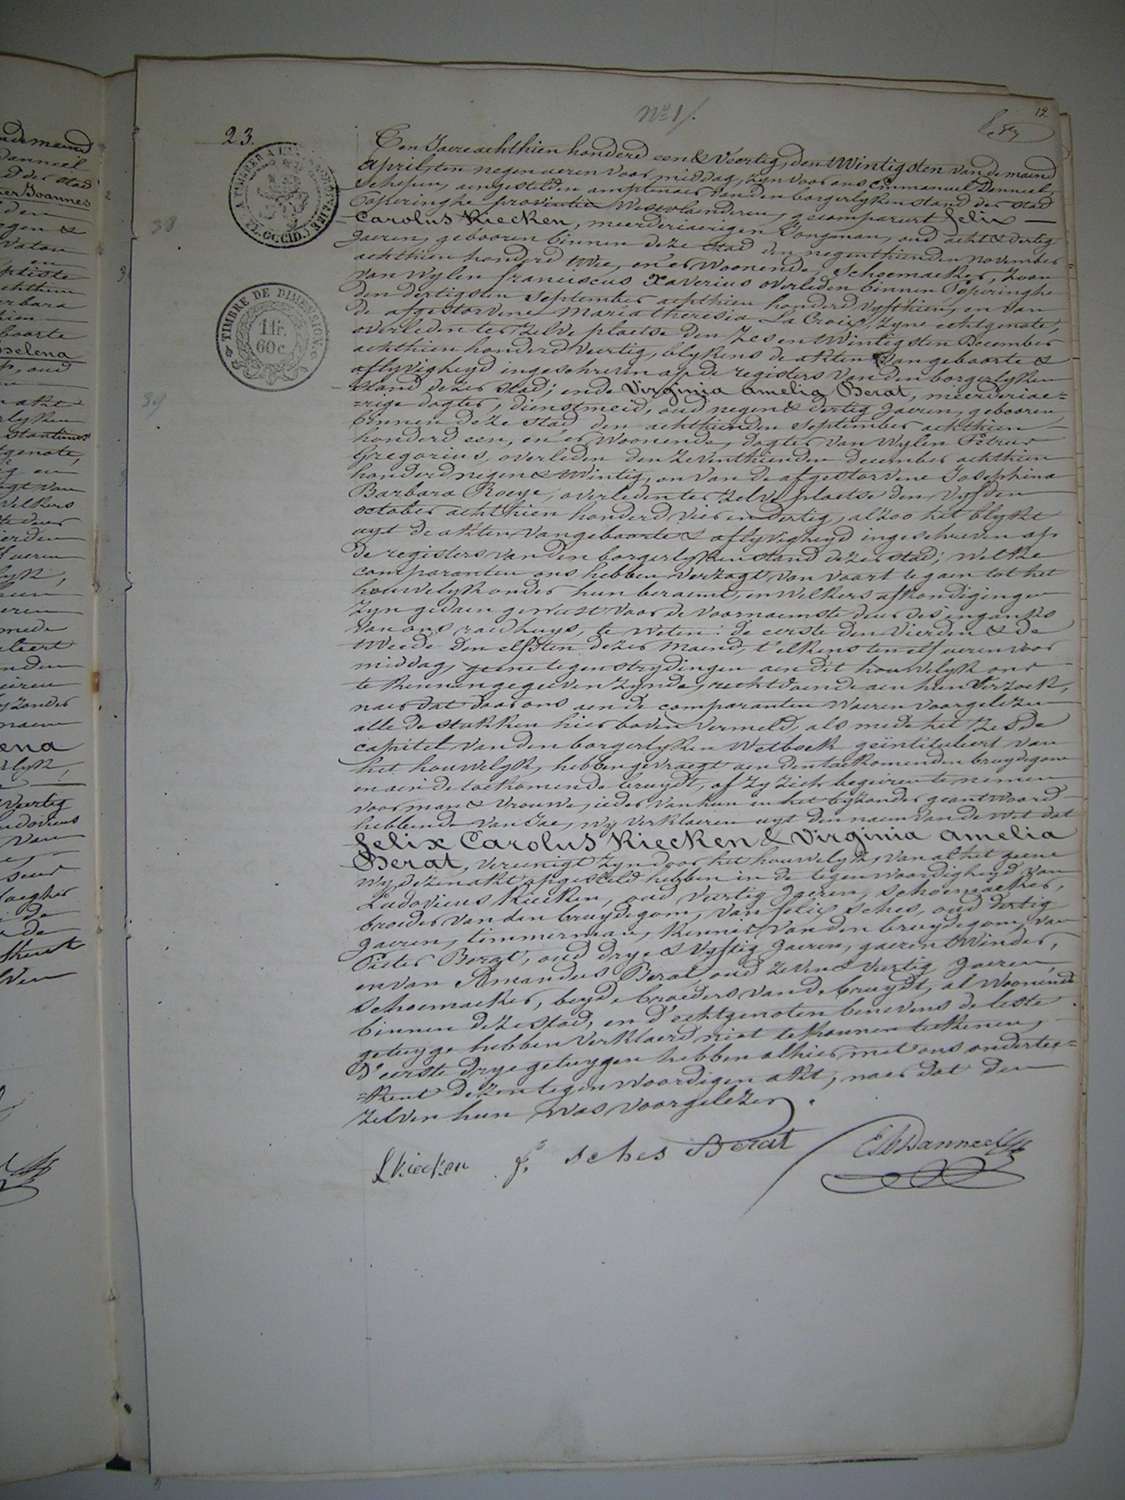 12
N° 1/.
23.
Een Jaere achthien honderd een & Veertig, den twintigsten van de maend
April, ten negen ueren voor middag, zyn voor ons Emmanuel Danneel,
Schepen, aengestelden amptenaer van den borgerlyken stand der stad
Poperinghe provintie Westvlanderen, gecompareert Felix
Carolus Kiecken, meerderjaerigen Jongman, oud acht & dertig
Jaeren, gebooren binnen deze Stad den negenthienden november
achthien honderd twee, en er Woonende, Schoemaeker, zoon
van Wylen franciscus Xaverius overleden binnen Poperinghe
den dertigsten September achthien honderd vyfthien, en van
de afgestorvene Maria theresia La Croix, zyne echtgenote,
overleden ter zelve plaetse den Zes en twintigsten December
achthien honderd Veertig, blykens de akten van geboorte &
aflyvigheyd ingeschreven op de registers van den borgerlyken
stand dezer Stad; ende Virginia Amelia Berat, meerderjae=
=rige dogter, dienstmeid, oud negen & dertig Jaeren, gebooren
binnen deze Stad den achthienden September achthien
honderd een, en er Woonende, dogter van Wylen Petrus
Gregorius, overleden den Zeventhienden December achthien
honderd negen & twintig, en van de afgestorvene Josephina
Barbara Roeye, overleden ter zelve plaetse den Vyfden
october achthien honderd vier en dertig, alzoo het blykt
uyt de akten van geboorte & aflyvigheyd ingeschreven op
de registers van den borgerlyken stand dezer stad; Welke
comparanten ons hebben verzogt van voort te gaen tot het
houwelyk onder hun beraemt, en Welkers afkondigingen
zyn gedaen geweest voor de voornaemste deur des ingangs
van ons raedhuys, te Weten: de eerste den vierden & de
tweede den elfsten dezer Maend, t'elkens ten elf ueren voor
middag, geene tegenstrydingen aen dit houwelyk ons
te kennen gegeven zynde, recht doende aen hun Verzoek,
naer dat door ons aen de comparanten Waeren voorgelezen
alle de stukken hier boven vermeld, als mede het Zesde
capitel van den borgerlyken Wetboek geïntituleert van
het houwelyk, hebben gevraegt aen den toekomenden bruydegom
en aen de toekomende bruydt, of zy zich begeiren te nemen
voor man & Vrouwe, ieder van hun en het byzonder geantwoord
hebbende van Jae, wy verklaeren uyt den naem van de Wet dat
Felix Carolus Kiecken & Virginia Amelia
Berat, vereenigt zyn door het houwelyk, van al het geene
wy dezen akt opgesteld hebben in de tegenwoordigheyd van
Ludovicus Kiecken, oud Veertig Jaeren, Schoemaeker,
broeder van den bruydegom, van felix Sches, oud dertig
Jaeren, timmerman, kennes van den bruydegom, van
Pieter Berat, oud drye & Vyftig Jaeren, gaeren twinder,
en van Amandus Berat, oud zeven & Veertig Jaeren,
Schoemaeker, beyde broeders van de bruydt, al Woonende
binnen deze stad, en d'echtgenoten benevens de leste
getuyge hebben verklaerd niet te konnen teekenen,
d'eerste drye getuygen hebben alhier met ons onderteе=
=kent dezen tegenwoordigen akt, naer dat den
zelven hun was voorgelezen.
L kiecken f. sches Berat E. Danneel
TIMBRE DE DIMENSION
1 fr.
60 c.